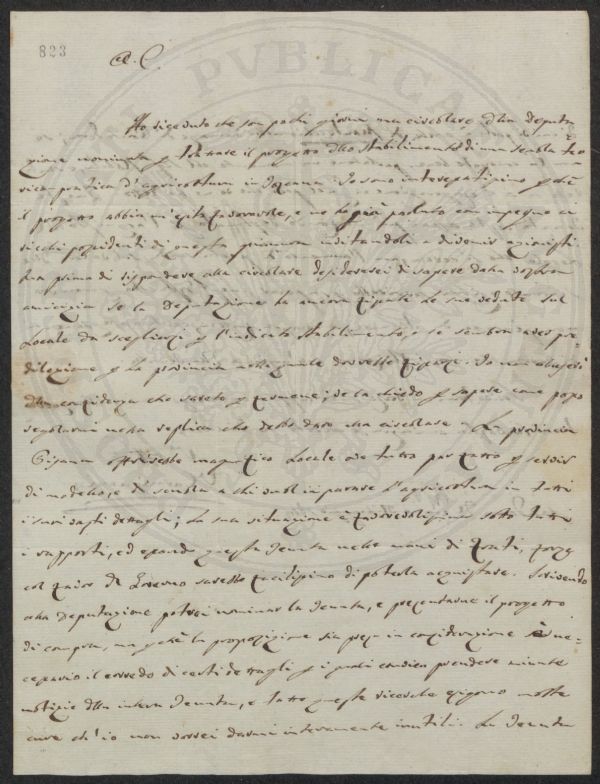 823
A. C.
Ho ricevuto che son pochi giorni una circolare della Deputa-
zione nominata p trattare il progetto dello Stabilimento di una scuola teo
rica pratica d'agricoltura in Toscana. Io sono interessatissimo p chè
il progetto abbia un'esito favorevole, e ne ho già parlato con impegno ai
ricchi possidenti di questa pianura invitandoli a divenir azionisti
Ma prima di rispondere alla circolare desidererei di sapere dalla vostra
amicizia se la Deputazione ha ancora fissate le sue vedute sul
Locale da scegliersi p l'indicato Stabilimento, e se sembra aver pre-
dilezione p la provincia nella quale dovrebbe fissarsi. Io non abuserò
della confidenza che sarete p farmene; ve la chiedo p sapere come posso
regolarmi nella replica che debbo dare alla circolare. La provincia
Pisana offrirebbe magnifico Locale ove tutto par fatto p servir
di modello, e di scuola a chi vuol imparare l'agricoltura in tutti
i suoi vasti dettagli; La sua situazione è favorevolissima sotto tutti
i rapporti, ed essendo questa Tenuta nelle mani di forse
col favor del Governo sarebbe facilissimo di poterla acquistare. Scrivendo
alla Deputazione potrei nominar la Tenuta, e presentarne il progetto
di compra, ma p chè la proposizione sia presa in considerazione è ne-
cessario il corredo di certi dettagli p i quali conviene prendere minute
notizie della intera Tenuta, e tutte queste ricerche esigono molte
cure ch'io non vorrei darmi interamente inutili. La Tenuta